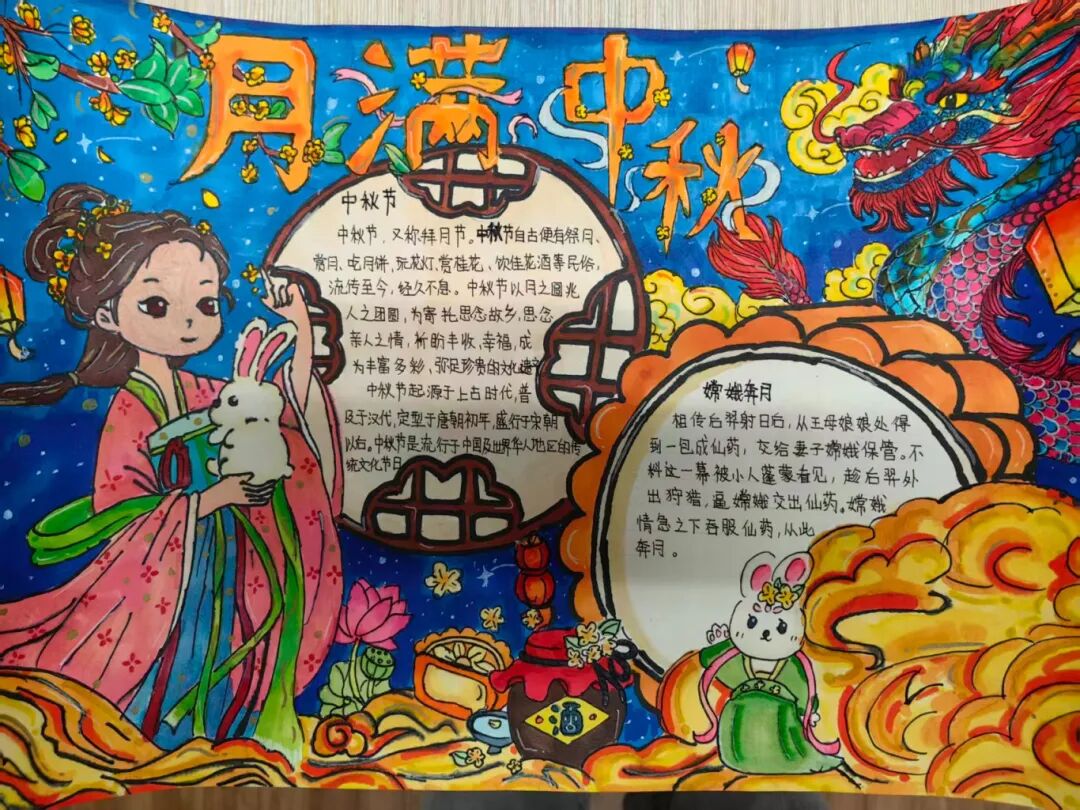 月满中秋
中秋节
中秋节，又称拜月节。中秋节自古便有祭月、
赏月、吃月饼、玩花灯、赏桂花、饮桂花酒等民俗，
流传至今，经久不息。中秋节以月之圆兆
人之团圆，为寄托思念故乡，思念
亲人之情，祈盼丰收、幸福，成
为丰富多彩、弥足珍贵的文化遗产
中秋节起源于上古时代，普
及于汉代，定型于唐朝初年，盛行于宋朝
以后。中秋节是流行于中国及世界华人地区的传
统文化节日
嫦娥奔月
相传后羿射日后，从王母娘娘处得
到一包成仙药，交给妻子嫦娥保管。不
料这一幕被小人蓬蒙看见，趁后羿外
出狩猎，逼嫦娥交出仙药。嫦娥
情急之下吞服仙药，从此
奔月。
酒